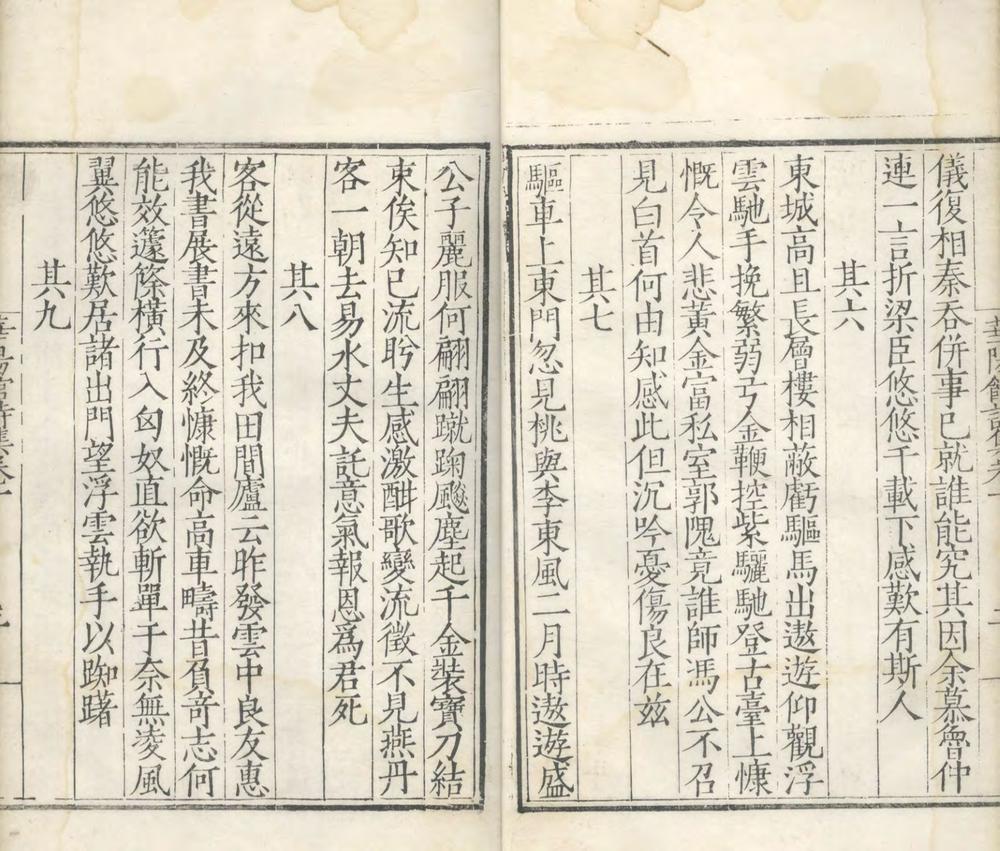 儀復相秦吞併事已就誰能究其因余慕魯仲
連一言折梁臣悠悠千載下感歎有斯人
其六
東城高且長層樓相蔽虧驅馬出遨遊仰觀浮
雲馳手挽繁弱弓金鞭控紫驪馳登古臺上慷
慨令人悲黃金富私室郭隗竟誰師馮公不召
見白首何由知感此但沉吟憂傷良在茲
其七
驅車上東門忽見桃與李東風二月時遨遊盛
公子麗服何翩翩蹴踘飈塵起千金裝寶刀結
束俟知已流眄生感激酣歌變流徵不見燕丹
客一朝去易水丈夫託意氣報恩爲君死
其八
客從遠方來扣我田間廬云昨發雲中良友惠
我書展書未及終慷慨命高車疇昔負奇志何
能效籧篨橫行入匈奴直欲斬單于奈無凌風
翼悠悠歎居諸出門望浮雲執手以踟躇
其九